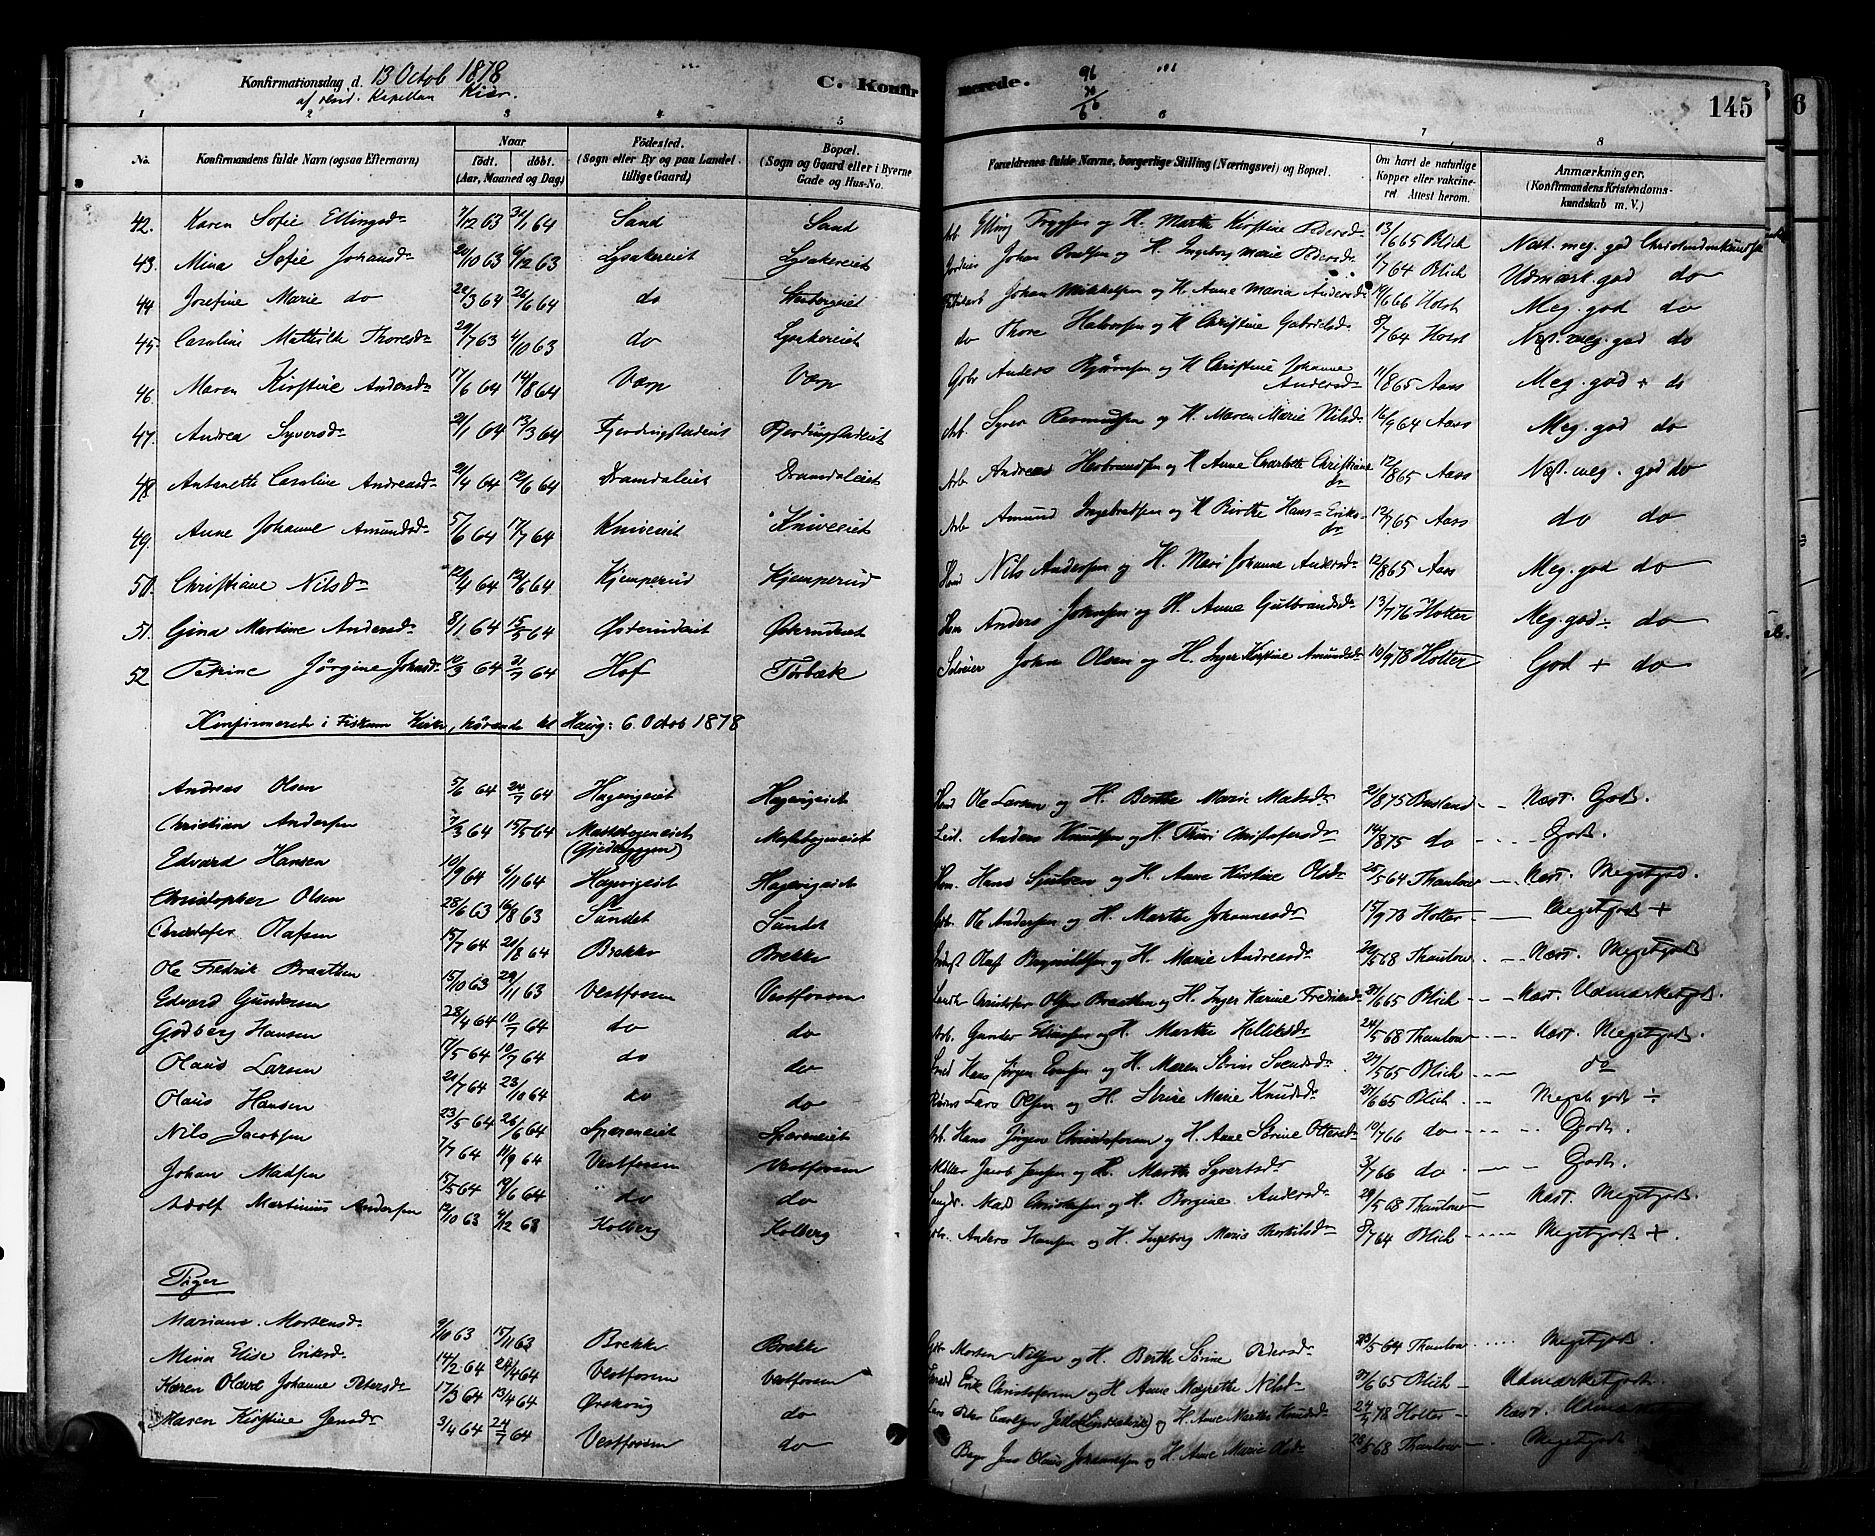 Konfirmationsdag d. 13 Octob 1878 C. Konfirmerede. 145
af resid. Kapellan Kier.
1 2 3 4 5 6 7 8
No. Konfirmandens fulde Navn (ogsaa Efternavn) Naar født. døbt. (Aar, Maaned og Dag) Fødested. (Sogn eller By og paa Landet tillige Gaard) Bopæl. (Sogn og Gaard eller i Byerne Gade og Hus-No. Forældrenes fulde Navne, borgerlige Stilling (Næringsvei) og Bopæl. Om havt de naturlige Kopper eller vakcineret. Attest herom. Anmærkninger. (Konfirmandens Kristendomskundskab m. V.)
42. Karen Sofie Ellingsdr 7/12 63 31/1 64 Sand Sand Arb Elling Tryggsen og H. Marthe Kirstine Pedersdr 13/6 65 Blich Næst. meg. god Christendomskundsk
43. Mina Sofie Johansdr 20/10 63 6/12 63 Lysakereiet Lysakereiet Johan Poulsen og H. Ingeborg Marie Pedersdr 1/7 64 Blich Udmærk. god do
44 Josefine Marie do 22/3 64 26/6 64 do Johan Mikkelsen og H. Anne Maria Andersdr 14/6 66 Horst Meg. god do
45. Caroline Mathilde Thoresdr 29/7 63 4/10 63 do Lysakereiet do Thore Halvorsen og H Christine Gabrielsd. 8/7 64 Horst Næst. meg. god do
46. Maren Kirstine Andersdr 17/6 64 14/8 64 Værp Værp Gbr Anders Bjørnsen og H Christine Johanne Andersdr 11/8 65 Aass Meg. god + do
47. Andrea Syversdr 21/1 64 13/3 64 Fjerdingstadeiet Fjerdingstadeiet Arb. Syver Rasmussen og H Maren Marie Nilsd. 16/9 64 Aass Meg. god do
48 Antonette Caroline Andreasdr 21/4 64 12/6 64 Dramdaleiet Dramdaleiet Arb Andreas Herbrandsen og H Anne Charlotte Christiane dr 12/8 65 Aass Næst. meg. god do
49. Anne Johanne Amundsdr 5/6 64 17/7 64 Kniveeiet Kniveeiet Arb Amund Ingebretsen og H Birthe Hans= Eriksdr 12/7 65 Aass do do
50. Christiane Nilsdr 12/4 64 12/6 64 Kjemperud Kjemperud Nils Andersen og H. Mari Johanne Andersd. 12/8 65 Aass Meg. god do
51. Gina Martine Andersdr 8/1 64 15/5 64 Østerudeiet Østerudeiet Anders Johnsen og H. Anne Gulbrandsdr 13/7 76 Holter Meg. god ÷ do
52 Petrine Jørgine Johnsdr 10/3 64 31/7 64 Hof Torbæk Selveier Johan Olsen og H. Inger Kirstine Amundsdr 10/9 78 Holter God + do
Konfirmerede i Fiskum Kirke, hørende til Haug: 6. Octob 1878
Andreas Olsen 5/6 64 24/7 64 Hagavigeiet Hagavigeiet Ole Larsen og H. Berthe Marie Matsdr 21/8 75 Buslund Næst. Godt.
Christian Andersen 7/3 64 15/5 64 Mastebogeneiet (Gjederyggen) Mastebogeneiet Leil. Anders Knudsen og H. Thori Christofersdr 14/8 75 do Godt.
Edvard Hansen 10/9 64 6/11 64 Hagavigeiet Hagavigeiet Hans Sjulsen og H. Anne Kirstine Olsdr 25/5 64 Thaulow Næst. Megetgod.
Christopher Olsen 28/6 63 16/8 63 Sundet Sundet Ole Andersen og H. Marthe Johannesdr 15/9 78 Holter Megetgodt +
Christofer Olafsen 15/7 64 21/8 64 Brekke Brekke Olaf Bagnildsen og H. Marie Andreasdr 20/5 68 Thaulow Næst. Megetgodt
Ole Fredrik Braathen 15/10 63 29/11 63 Vestfossen Vestfossen Christofer Olsen Braathen og H. Inger Karine Fredriksdr 21/6 65 Blich Næst. Udmærketgodt.
Edvard Gundersen 28/4 64 10/7 64 do do Arb. Gunder Eliassen og H. Marthe Helliksdr 24/5 68 Thaulow Næst. Megetgodt.
Godberg Hansen 17/5 64 10/7 64 do do Smed Hans Jørgen Evensen og H. Maren Sirine Svendsdr 27/5 65 Blich do
Olaus Larsen 21/7 64 23/10 64 do do Lars Olsen og H Sirine Marie Knudsdr 27/6 65 Blich Megetgodt ÷
Olaus Hansen 23/5 64 26/6 64 Speseneiet Speseneiet Arb. Hans Jørgen Christofersen og H. Anne Sirine Ottersdr 10/7 66 do Godt.
Nils Jacobsen 7/7 64 11/9 64 Vestfossen Vestfossen Møller Jacob Jensen og H. Marthe Syvertsdr 3/7 66 do Godt.
Johan Madsen 15/5 64 19/6 64 do do Mads Christofersen og H. Borgine Andersdr 29/5 68 Thaulow Næst. Megetgodt.
Adolf Martinius Andersen 12/10 63 6/12 63 Kolberg Kolberg Anders Hansen og H. Ingeborg Maria Thorkildsdr 8/7 64 Blich Megetgodt +.
Piger
Mariane Mortensdr 9/10 63 15/11 63 Brekke Brekke Morten Nilsen og H. Berthe Sirine Pedersdr 23/5 64 Thaulow Megetgodt.
Mina Elise Eriksdr 14/2 64 24/4 64 Vestfossen Vestfossen Erik Christofersen og H Anne Margrethe Nilsdr 27/6 65 Blich Udmærketgodt.
Karen Olava Johanne Petersdr 17/3 64 13/4 64 Ørekrig do Peter Carlsen og H. Anne Marthe Knudsdr 24/7 78 Holter Næst.
Maren Kirstine Jensdr 3/4 64 24/7 64 Vestfossen do Jens Olaus Johannesen og H Anne Marie Olsdr 28/5 68 Thaulow Megetgodt